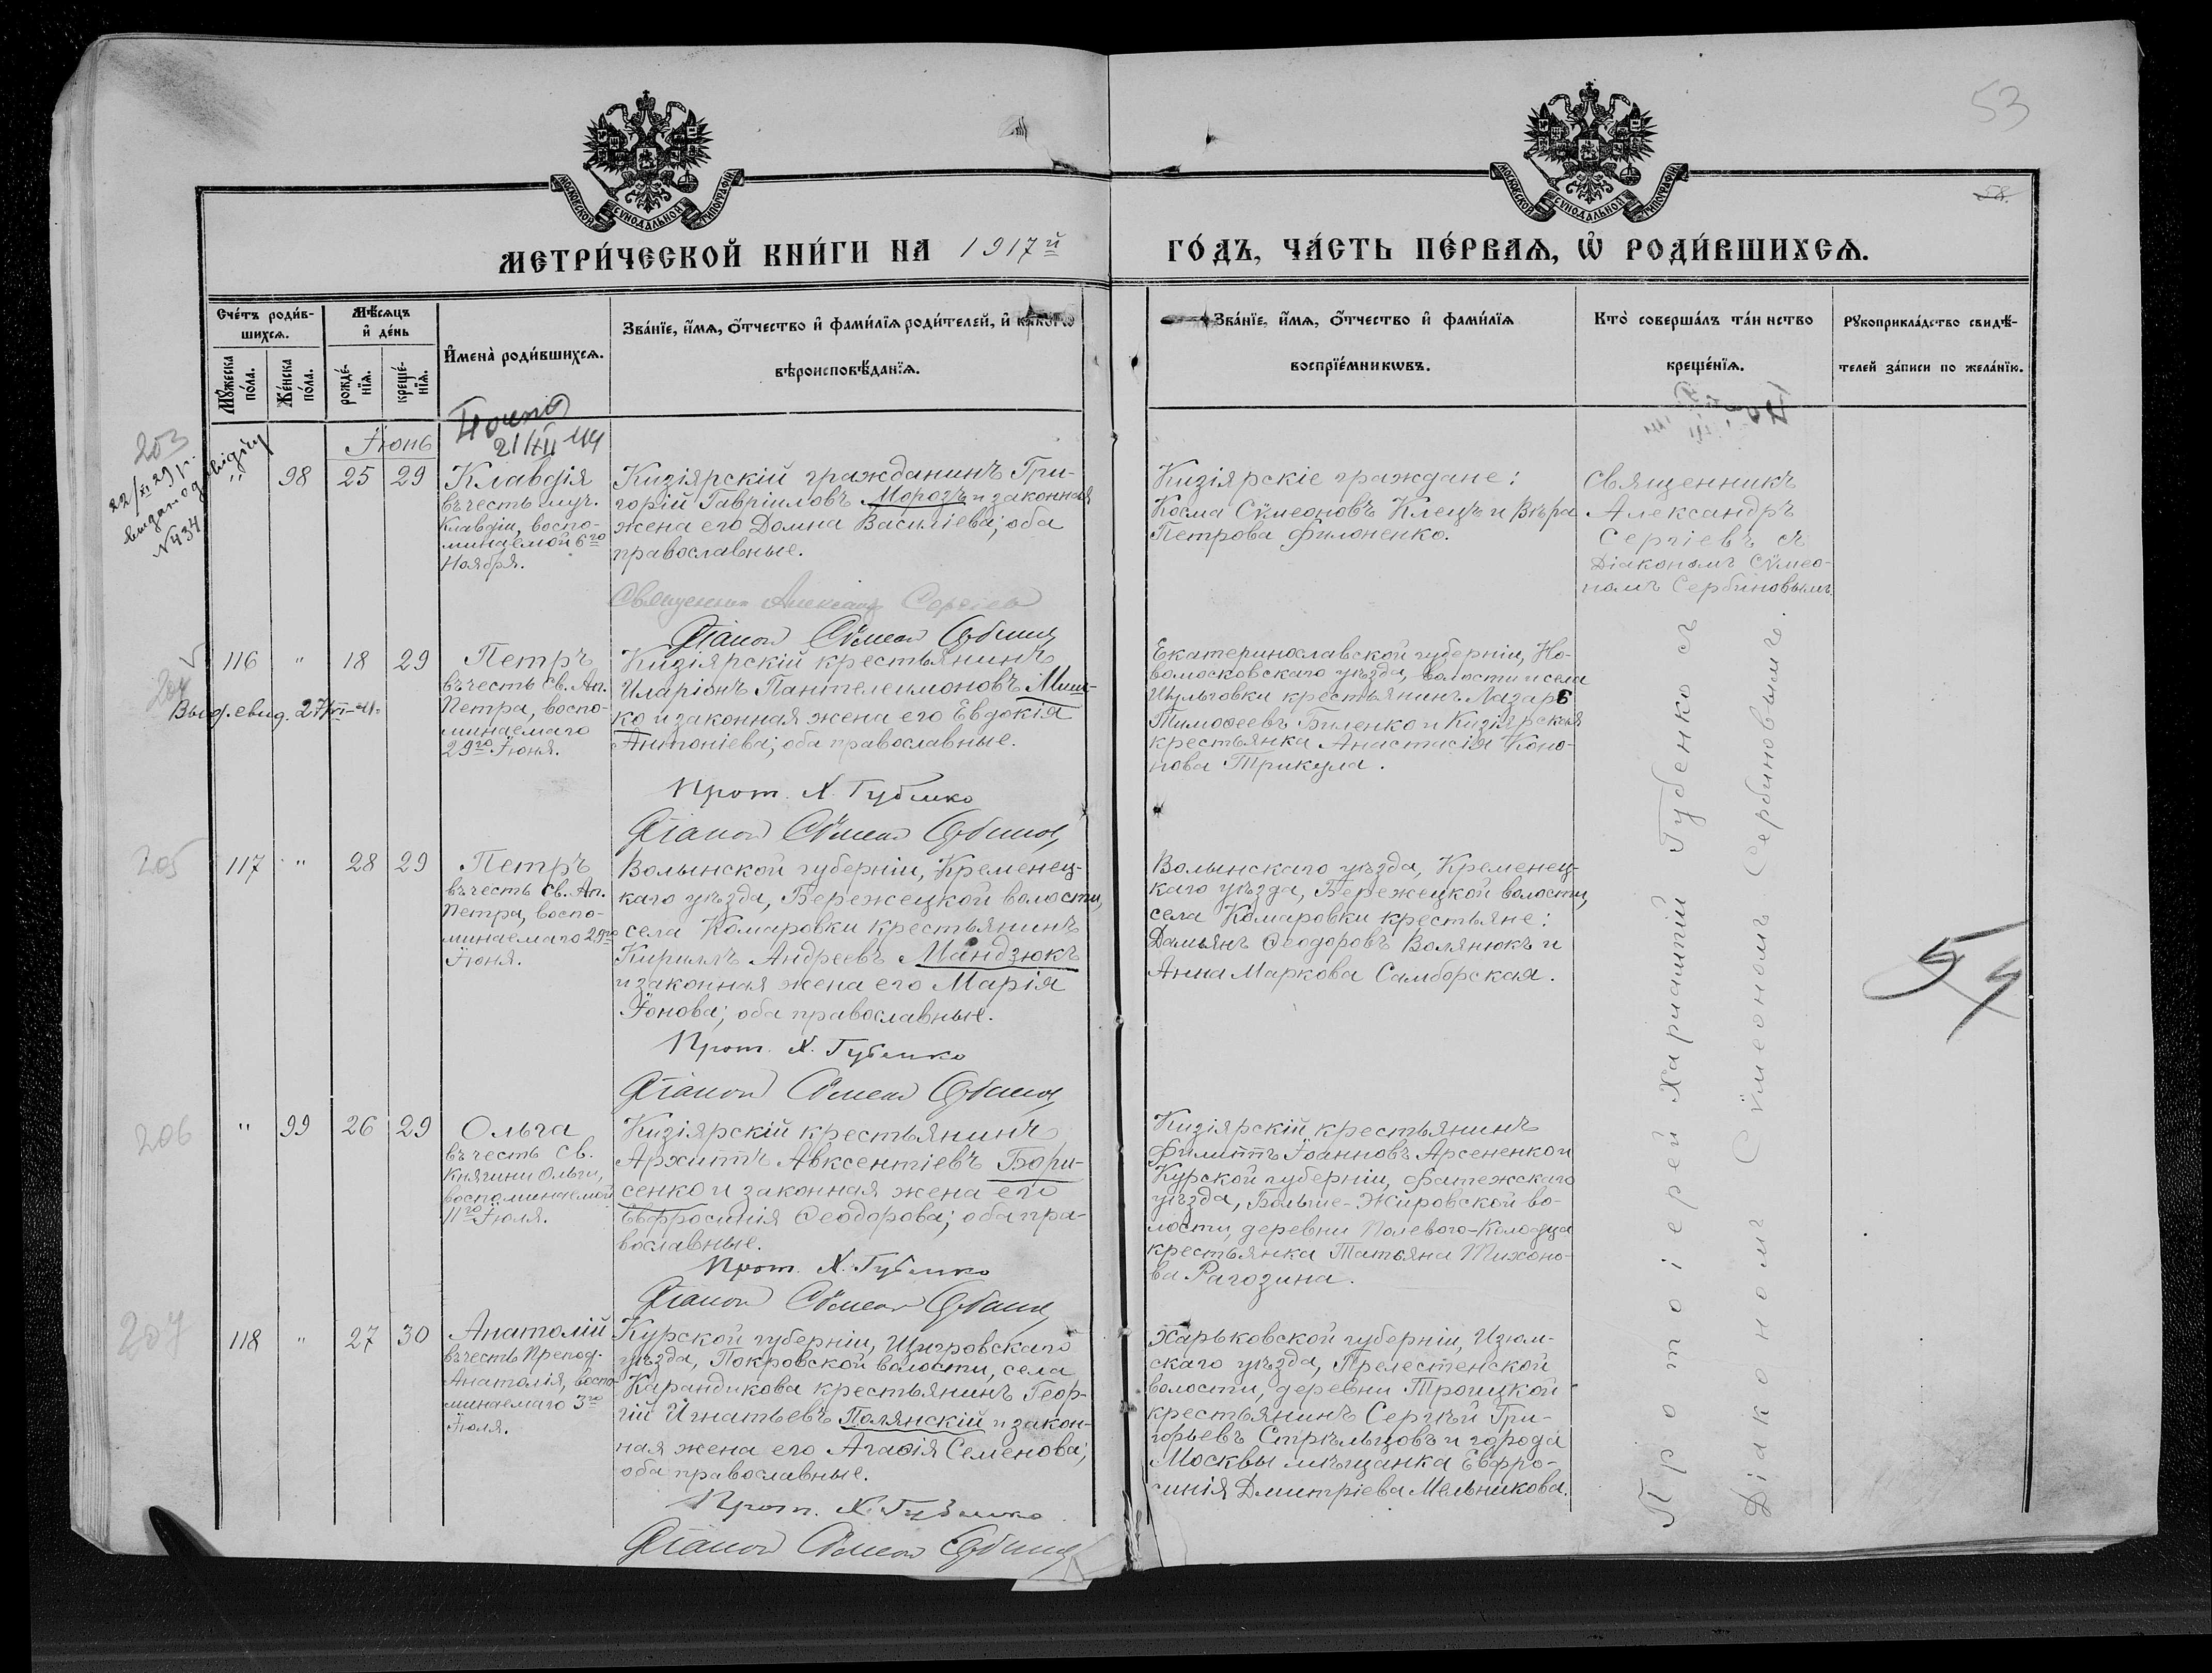 53
58.
МОСКОВСКОЙ СѴНОДАЛЬНОЙ ТИПОГРАФІИ
МОСКОВСКОЙ СѴНОДАЛЬНОЙ ТИПОГРАФІИ
МЕТРИ́ЧЕСКОЙ КНИ́ГИ НА 1917й
ГО́ДЪ, ЧА́СТЬ ПЕ́РВАѦ, Ѿ РОДИ́ВШИХСѦ.
Сче́тъ роди́в-
шихсѧ.
Мѣ́сѧцъ
и҆ де́нь
Мꙋ́жеска по́ла.
Же́нска по́ла.
рожде́-
нїѧ.
креще́-
нїѧ.
И҆мена̀ роди́вшихсѧ.
Зва́нїе, и҆́мѧ, ѻ҆́тчество и҆ фами́лїѧ роди́телей, и҆ како́гѡ
вѣроисповѣ́данїѧ.
Зва́нїе, и҆́мѧ, ѻ҆́тчество и҆ фами́лїѧ
воспрїе́мникѡвъ.
Кто̀ соверша́лъ та́инство
креще́нїѧ.
Рꙋкоприкла́дство свидѣ́-
телей за́писи по жела́нїю.
21/XII 44
Іюнь
203
22/XI 29 р.
видано довідку
№434
" 98 25 29
Клавдія
въ честь муч.
Клавдіи, воспо-
минаемой 6го
Ноября.
Кизіярскій гражданинъ Гри-
горій Гавріиловъ Морозъ и законная
жена его Домна Василіева; оба
православные.
Священникъ Александръ Сергіевъ
Діаконъ Сѵмеонъ Сербиновъ
Кизіярскіе граждане:
Косма Сѵмеоновъ Клецъ и Вѣра
Петрова Филоненко.
Священникъ
Александръ
Сергіевъ съ
Діакономъ Сѵмео-
номъ Сербиновымъ.
204
Выд. свид. 27/VI-41.
116 " 18 29
Петръ
въ честь Св. Ап.
Петра, воспо-
минаемаго
29го Іюня.
Кизіярскій крестьянинъ
Иларіонъ Пантелеимоновъ Миш-
ко и законная жена его Евдокія
Антоніева; оба православные.
Прот. Х. Губенко
Діаконъ Сѵмеонъ Сербиновъ
Екатеринославской губерніи, Но-
вомосковскаго уѣзда, волости и села
Шульговки крестьянинъ Лазарь
Тимоѳеевъ Биленко и Кизіярская
крестьянка Анастасія Коно-
нова Трикула.
Протоіерей Харлампій Губенко съ
Діакономъ Сѵмеономъ Сербиновымъ.
205
117 " 28 29
Петръ
въ честь Св. Ап.
Петра, воспо-
минаемаго 29го
Іюня.
Волынской губерніи, Кременец-
каго уѣзда, Бережецкой волости,
села Комаровки крестьянинъ
Кириллъ Андреевъ Мандзюкъ
и законная жена его Марія
Іонова; оба православные.
Прот. Х. Губенко
Діаконъ Сѵмеонъ Сербиновъ
Волынскаго уѣзда, Кременец-
каго уѣзда, Бережецкой волости,
села Комаровки крестьяне:
Дамьянъ Ѳеодоровъ Волянюкъ и
Анна Маркова Самборская.
54
206
" 99 26 29
Ольга
въ честь Св.
Княгини Ольги,
воспоминаемой
11го Іюля.
Кизіярскій крестьянинъ
Архиппъ Авксентіевъ Бори-
сенко и законная жена его
Евфросинія Ѳеодорова; оба пра-
вославные.
Прот. Х. Губенко
Діаконъ Сѵмеонъ Сербиновъ
Кизіярскій крестьянинъ
Филиппъ Іоанновъ Арсененко и
Курской губерніи, Фатежскаго
уѣзда, Больше-Жировской во-
лости, деревни Полевого-Колодца
крестьянка Татьяна Тихоно-
ва Рагозина.
207
118 " 27 30
Анатолій
въ честь Препод.
Анатолія, воспо-
минаемаго 3го
Іюля.
Курской губерніи, Щигровскаго
уѣзда, Покровской волости, села
Карандикова крестьянинъ Геор-
гій Игнатьевъ Полянскій и закон-
ная жена его Агаѳія Семенова;
оба православные.
Прот. Х. Губенко
Діаконъ Сѵмеонъ Сербиновъ
Харьковской губерніи, Изюм-
скаго уѣзда, Прелестенской
волости, деревни Троицкой
крестьянинъ Сергѣй Гри-
горьевъ Стрѣльцовъ и города
Москвы мѣщанка Евфро-
синія Дмитріева Мельникова.